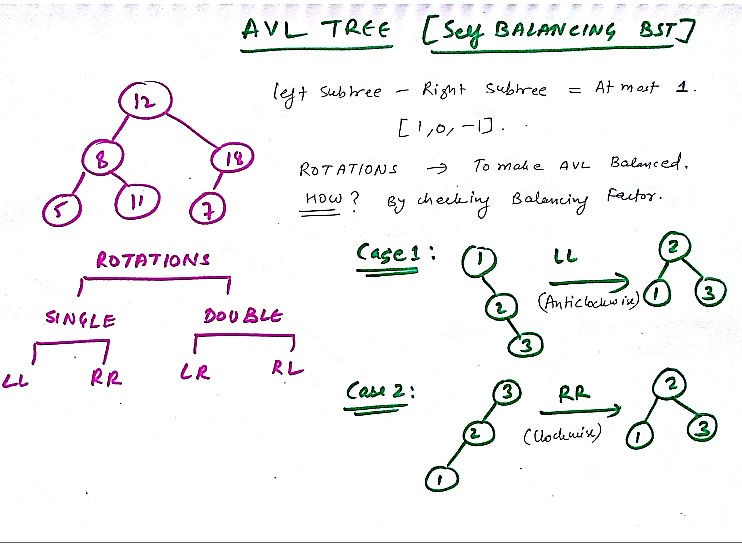 AVL TREE [Self BALANCING BST]
left subtree – Right subtree = At most 1.
[1,0,-1].
ROTATIONS → To make AVL Balanced.
HOW? By checking Balancing Factor.
12
8 18
5 11 7
ROTATIONS
SINGLE DOUBLE
LL RR LR RL
Case 1: 1 LL 2
2 (Anticlockwise) 1 3
3
Case 2: 3 RR 2
2 (Clockwise) 1 3
1